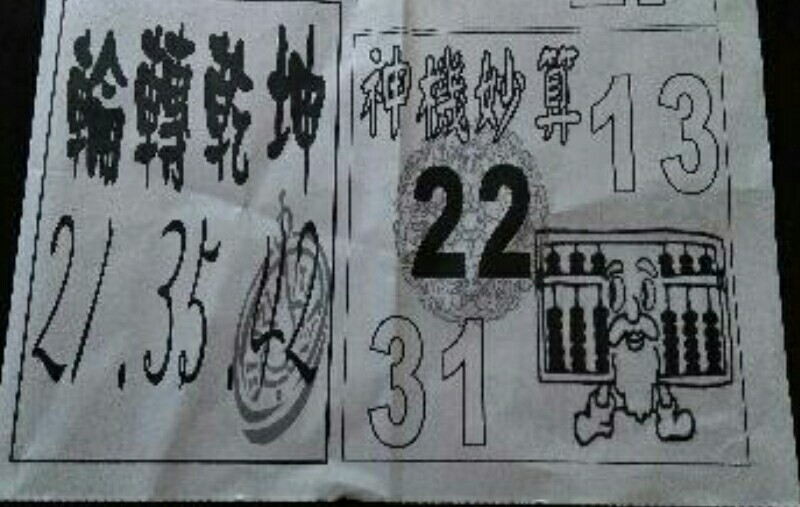 輪轉乾坤
21.35.42
神機妙算
13
22
31